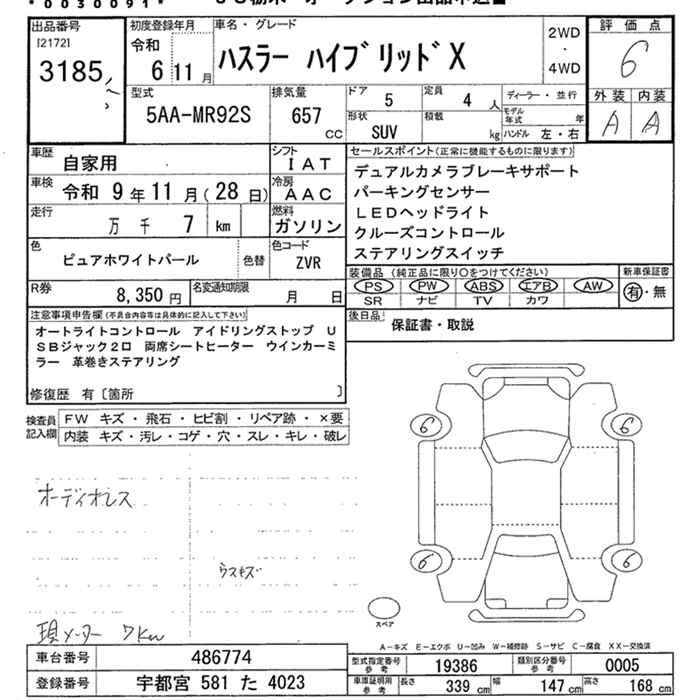 *0030091*
出品番号 初度登録年月 車名・グレード 2WD・4WD 評価点
[2172] 令和
3185 6 11月 ハスラー ハイブリッドX 6
型式 排気量 ドア 5 定員 4人 ディーラー・並行 外装 内装
5AA-MR92S 657 CC 形状 SUV 積載 kg モデル年式 年 ハンドル 左・右 A A
車歴 自家用 シフト IAT セールスポイント(正常に機能するものに限ります)
車検 令和 9年11月(28日) 冷房 AAC デュアルカメラブレーキサポート
パーキングセンサー
走行 万 千 7 km 燃料 ガソリン LEDヘッドライト
クルーズコントロール
色 ピュアホワイトパール 色替 色コード ZVR ステアリングスイッチ
装備品(純正品に限り○をつけてください) 新車保証書
PS PW ABS エアB AW 有・無
SR ナビ TV カワ
R券 8,350円 名変通知期限 月 日
後日品 保証書・取説
注意事項申告欄(不具合内容等は具体的に記入して下さい)
オートライトコントロール アイドリングストップ U
SBジャック2口 両席シートヒーター ウインカーミ
ラー 革巻きステアリング
修復歴 有〔箇所 〕
検査員記入欄 FW キズ・飛石・ヒビ割・リペア跡・×要
内装 キズ・汚レ・コゲ・穴・スレ・キレ・破レ
6 6
オーディオレス
ウスキズ
6 6
スペア
現メーター 7km
A-キズ E-エクボ U-凹み W-補修跡 S-サビ C-腐食 XX-交換済
車台番号 486774 型式指定番号 参考 19386 類別区分番号 参考 0005
登録番号 宇都宮 581 た 4023 車庫証明用 参考 長さ 339cm 幅 147cm 高さ 168cm